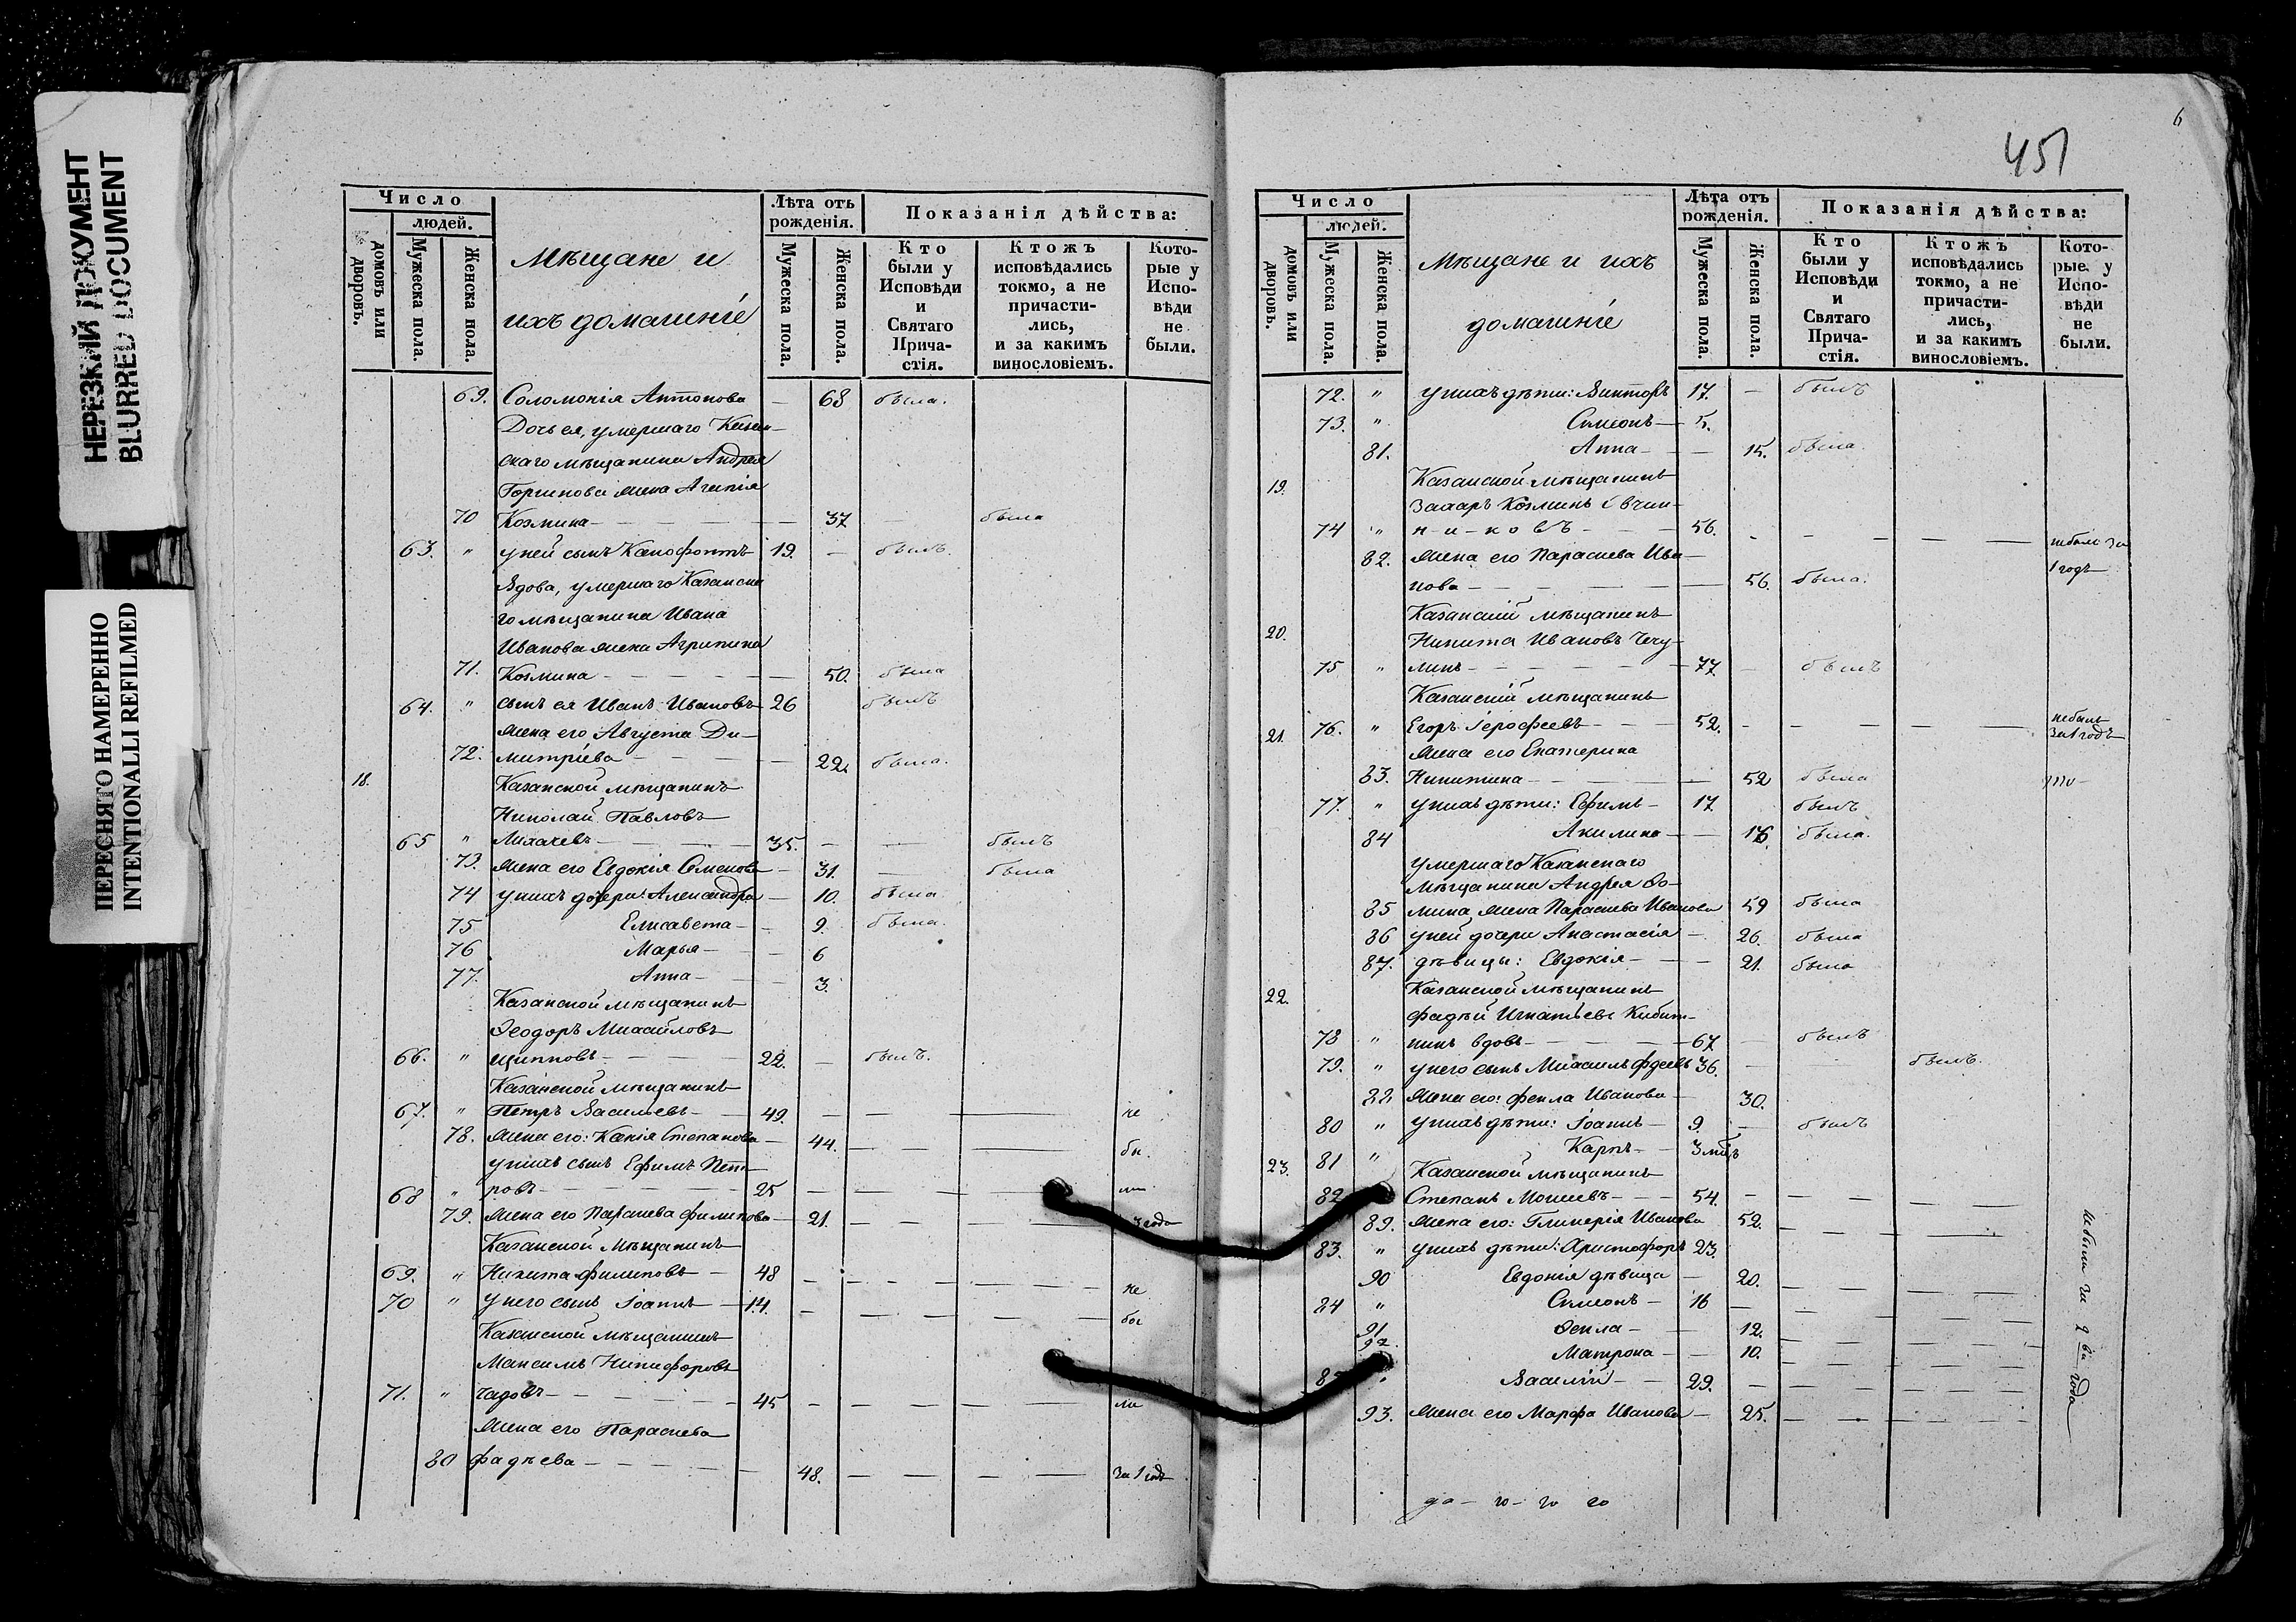 НЕРЕЗКИЙ ДОКУМЕНТ
BLURRED DOCUMENT
ПЕРЕСНЯТО НАМЕРЕННО
INTENTIONALLI REFILMED
Число
людей.
домовъ или дворовъ.
Мужеска пола.
Женска пола.
Мѣщане и
ихъ домашнѣ
Лѣта отъ рожденія.
Мужеска пола.
Женска пола.
Показанія дѣйства:
Кто были у Исповѣди и Святаго Прича-стія.
Ктожъ исповѣдались токмо, а не причасти-лись, и за какимъ винословіемъ.
Кото-рые у Испо-вѣди не были.
69. Соломонія Антонова — 68 была.
Дочь ея, умершаго Казан-
скаго мѣщанина Андрея
жена
70 Козмина — 37 — была
63. " у ней сынъ 19. — былъ
Вдова, умершаго Казанска
го мѣщанина Ивана
Иванова жена Агрипина
71. Козмина — 50. была
64. " сынъ ея Иванъ Ивановъ 26 былъ
жена его Августа Ди-
72. митріева — 22. была.
18. Казанской мѣщанинъ
Николай Павловъ
65 " Лихачевъ — 35. — — былъ
73. жена его Евдокія Семенова — 31. — была
74 у нихъ дочери: Александра — 10. была
75 Елисавета — 9. была.
76 Марья — 6
77. Анна — 3.
Казанской мѣщанинъ
Ѳеодоръ Михайловъ
66. " Щипковъ — 22. — былъ.
Казанской мѣщанинъ
67. " Петръ Васильевъ — 49. — — — не
78. жена его: Степанова — 44. — — — бы.
у нихъ сынъ Ефимъ Пет-
68 " ровъ — 25 — — — ли
79. жена его Параскева Филипова — 21. — — — 3 года
Казанской Мѣщанинъ
69. " Никита Филиповъ — 48 — — — не
70 " У него сынъ Іоаннъ — 14. — — — бы
Казанской мѣщанинъ
Максимъ Никифоровъ
71. " Чадовъ — 45 — — — ли
Жена его Параскева
80 Фадѣева — 48. — — — за 1 годъ
6
451
Число
людей.
домовъ или дворовъ.
Мужеска пола.
Женска пола.
Мѣщане и ихъ
домашнѣ
Лѣта отъ рожденія.
Мужеска пола.
Женска пола.
Показанія дѣйства:
Кто были у Исповѣди и Святаго Прича-стія.
Ктожъ исповѣдались токмо, а не причасти-лись, и за какимъ винословіемъ.
Кото-рые у Испо-вѣди не были.
72. " у нихъ дѣти: Викторъ 17. — былъ
73. " Симеонъ — 5.
81. Анна — — 15. была.
19. Казанской мѣщанинъ
Захаръ Козминъ Овчин-
74 " н-и-к-о в ъ — 56. — — — не былъ за
82. жена его Параскева Ива-
1 годъ
нова — 56. была.
20. Казанскій мѣщанинъ
Никита Ивановъ Чегу-
75 " линъ — 77 — былъ
Казанскій мѣщанинъ
21. 76. " Егоръ Іерофеевъ — 52. — — — не былъ
за 1 годъ
жена его Екатерина
83. Никитина — 52 была
77. " у нихъ дѣти: Ефимъ — 17. былъ
84 Акилина — 16. была.
умершаго Казанскаго
мѣщанина Андрея Ѳо-
85 мина жена Параскева Иванова 59 была
86 у ней дочери Анастасія — 26. была
87. дѣвицы: Евдокія — 21. была
22. Казанской мѣщанинъ
Фадѣй Игнатьевъ Кибит-
78 " кинъ вдовъ — 67 — былъ
79. " у него сынъ Михаилъ Фадеевъ 36. — былъ.
88 жена его: Фекла Иванова — 30.
80 " у нихъ дѣти: Іоаннъ — 9. — былъ
81 " Карпъ — 3 мѣс.
23. Казанской мѣщанинъ
82 Степанъ Моисеевъ — 54. — — —
89. жена его: Гликерія Иванова 52. — — —
83. " у нихъ дѣти: Христофоръ 23.
90 Евдокія дѣвица — 20. — — —
84 " Симеонъ — 16 — — —
91 Ѳекла — 12. — — —
92. Матрона — 10. — — —
85 " Василій — 29. — — —
93. жена его Марфа Иванова — 25. — — —
не были за два года